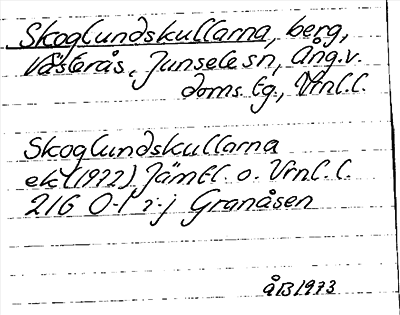 Skoglundskullarna, berg,
Västerås, Junsele sn, Ång.v.
doms. tg., Vrnl. l.
Skoglundskullarna
ek (1972) Jämtl. o. Vrnl. l.
216 0-1 i-j Granåsen
ÅB 1973